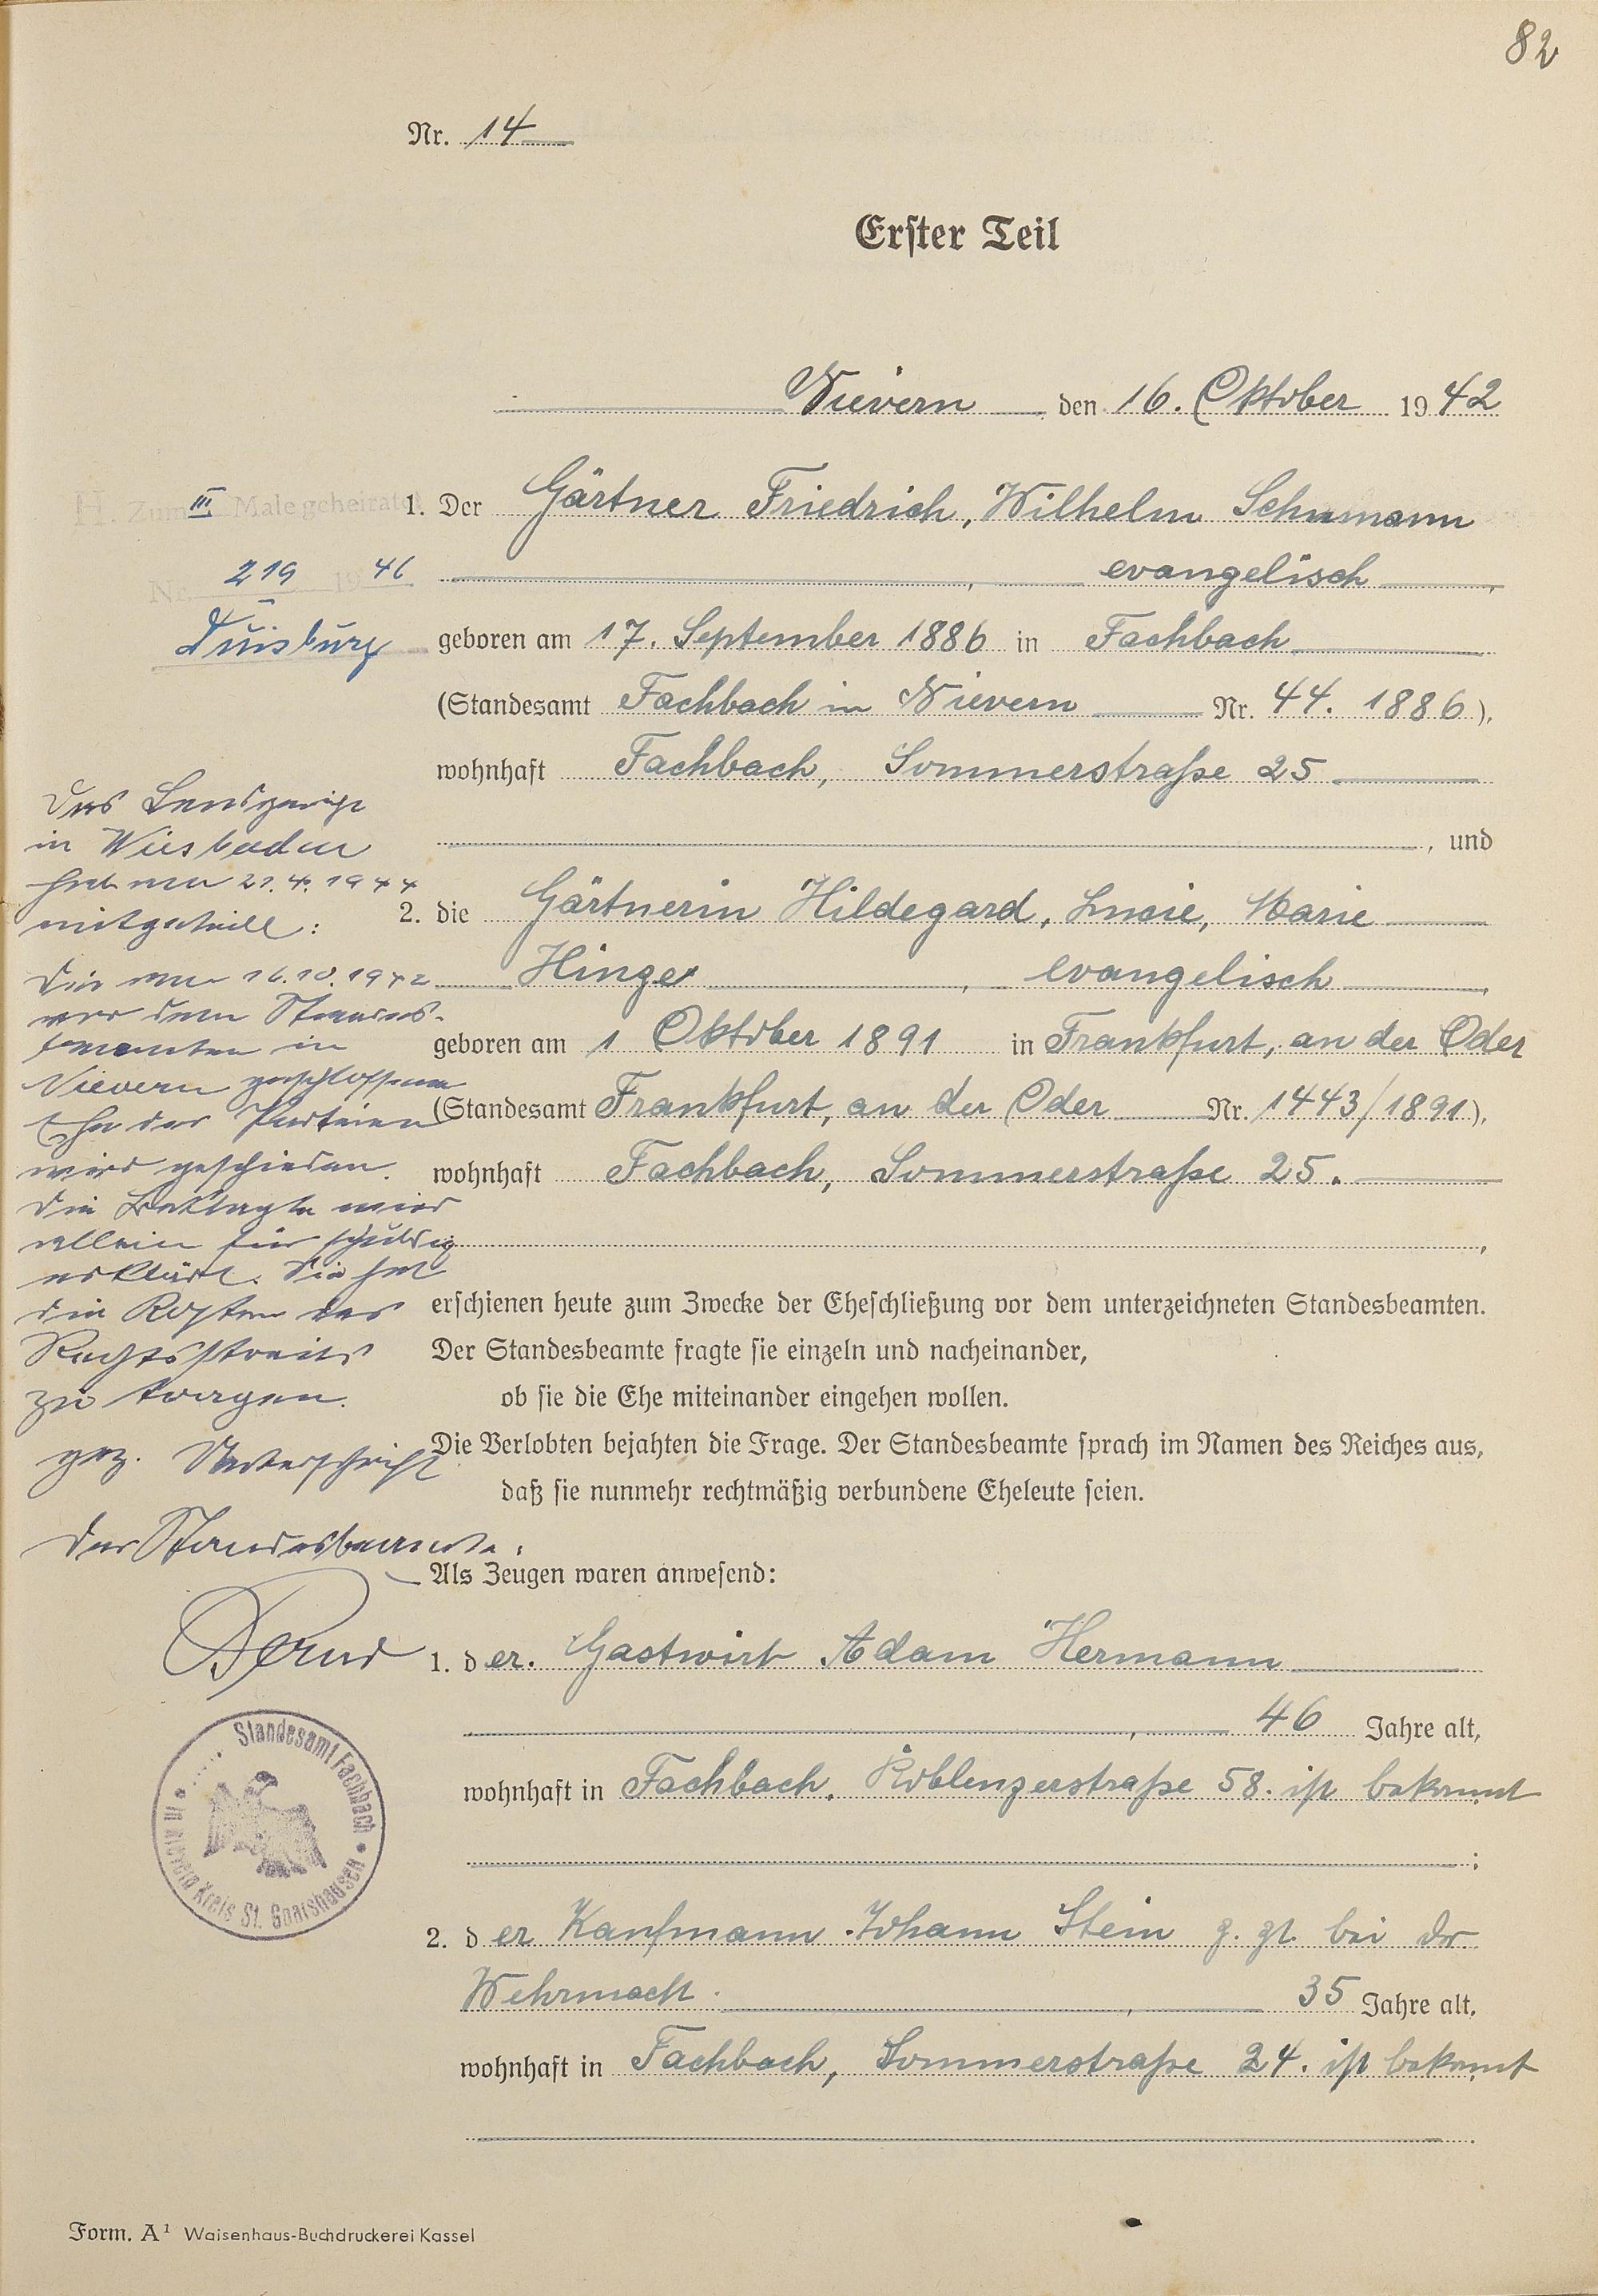 82
Nr. 14
Erster Teil
Nievern den 16. Oktober 1942
H. Zum III Male geheiratet
Nr. 219 1946
Duisburg
1. Der Gärtner Friedrich, Wilhelm Schumann
, evangelisch,
geboren am 17. September 1886 in Fachbach
(Standesamt Fachbach in Nievern Nr. 44. 1886),
wohnhaft Fachbach, Sommerstraße 25
, und
2. die Gärtnerin Hildegard, Lucie, Marie
Hinze, evangelisch,
geboren am 1 Oktober 1891 in Frankfurt, an der Oder
(Standesamt Frankfurt, an der Oder Nr. 1443/1891),
wohnhaft Fachbach, Sommerstraße 25.
,
Das Landgericht
in Wiesbaden
hat am 21.4.1944
mitgeteilt:
Die am 16.10.1942
vor dem Standes-
beamten in
Nievern geschlossene
Ehe der Parteien
wird geschieden.
Die Beklagte wird
allein für schuldig
erklärt. Sie hat
die Kosten des
Rechtsstreits
zu tragen.
gez. Unterschrift
Der Standesbeamte.
erschienen heute zum Zwecke der Eheschließung vor dem unterzeichneten Standesbeamten.
Der Standesbeamte fragte sie einzeln und nacheinander,
ob sie die Ehe miteinander eingehen wollen.
Die Verlobten bejahten die Frage. Der Standesbeamte sprach im Namen des Reiches aus,
daß sie nunmehr rechtmäßig verbundene Eheleute seien.
Als Zeugen waren anwesend:
1. der. Gastwirt Adam Hermann
, 46 Jahre alt,
wohnhaft in Fachbach, Koblenzerstraße 58. ist bekannt
;
Standesamt Fachbach
in Nievern Kreis St. Goarshausen
2. der Kaufmann Johann Stein z. Zt. bei der
Wehrmacht. , 35 Jahre alt,
wohnhaft in Fachbach, Sommerstraße 24. ist bekannt
.
Form. A¹ Waisenhaus-Buchdruckerei Kassel